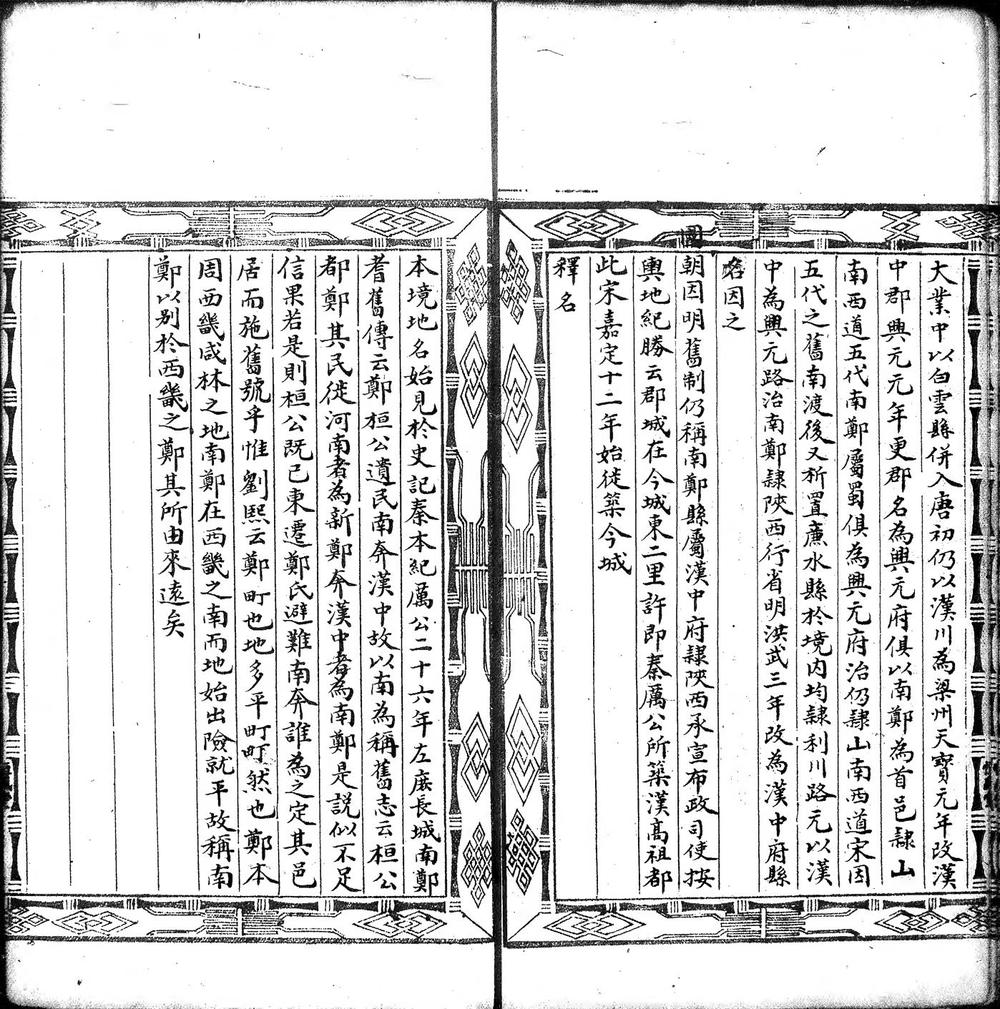 大業中以白雲縣併入唐初仍以漢川為梁州天寶元年改漢
中郡興元元年更郡名為興元府俱以南鄭為首邑隸山
南西道五代南鄭屬蜀俱為興元府治仍隸山南西道宋因
五代之舊南渡後又析置廉水縣於境內均隸利川路元以漢
中為興元路治南鄭隸陝西行省明洪武三年改為漢中府縣
名因之
國朝因明舊制仍稱南鄭縣屬漢中府隸陝西承宣布政司使按
輿地紀勝云郡城在今城東二里許即秦厲公所築漢高祖都
此宋嘉定十二年始徙築今城
釋名
本境地名始見於史記秦本紀厲公二十六年左庶長城南鄭
耆舊傳云鄭桓公遺民南奔漢中故以南為稱舊志云桓公
都鄭其民徙河南者為新鄭奔漢中者為南鄭是説似不足
信果若是則桓公既已東遷鄭氏避難南奔誰為之定其邑
居而施舊號乎惟劉熙云鄭町也地多平町町然也鄭本
周西畿咸林之地南鄭在西畿之南而地始出險就平故稱南
鄭以别於西畿之鄭其所由來遠矣